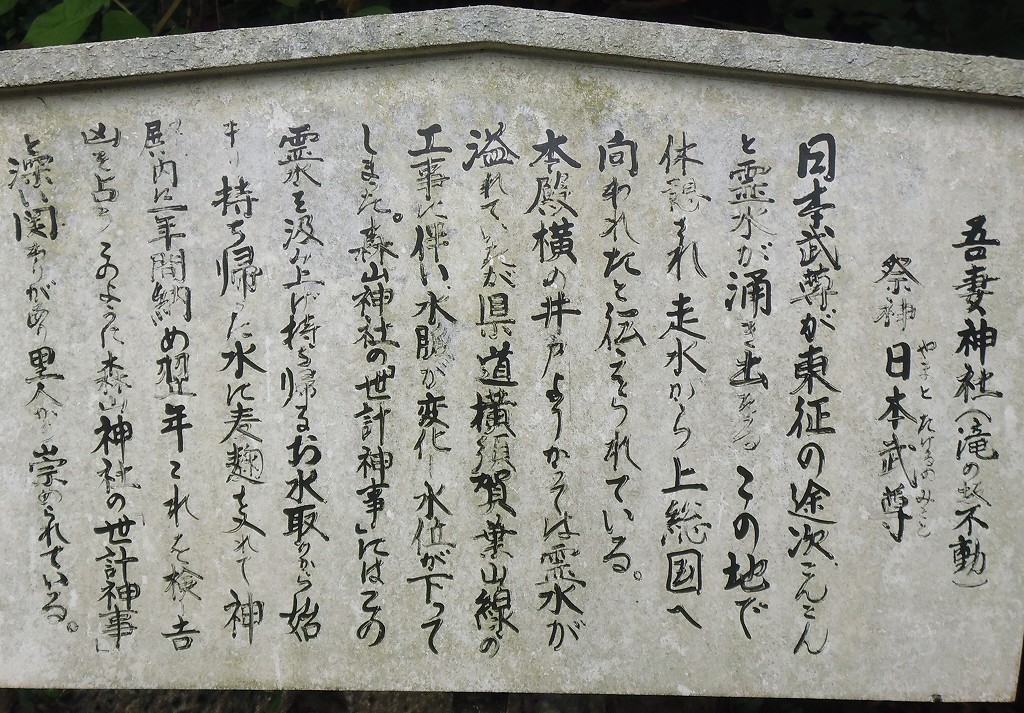 吾妻神社（滝の坂不動）
祭神 日本武尊
やまと たけるのみこと
日本武尊が東征の途次、こんこん
と霊水が涌き出ずる この地で
休憩され 走水から上総国へ
向われたと伝えられている。
本殿横の井戸よりかつては霊水が
溢れていたが県道横須賀葉山線の
工事に伴い、水脈が変化し水位が下って
しまった。森山神社の「世計神事」にはこの
霊水を汲み上げ持ち帰るお水取りから始
まり 持ち帰った水に麦麹を入れて 神
殿内に一年間納め翌年これを検し吉
凶を占う このように森山神社の世計神事」
と深い関わりがあり里人から崇められている。